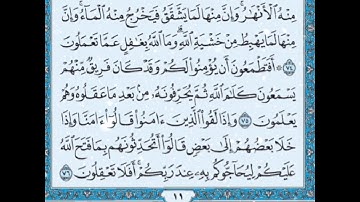 مِنْهُ الْأَنْهَٰرُ ۚ وَإِنَّ مِنْهَا لَمَا يَشَّقَّقُ فَيَخْرُجُ مِنْهُ الْمَآءُ ۚ وَإِنَّ
مِنْهَا لَمَا يَهْبِطُ مِنْ خَشْيَةِ اللَّهِ ۗ وَمَا اللَّهُ بِغَٰفِلٍ عَمَّا تَعْمَلُونَ
٧٤ ۞ أَفَتَطْمَعُونَ أَن يُؤْمِنُوا۟ لَكُمْ وَقَدْ كَانَ فَرِيقٌ مِّنْهُمْ
يَسْمَعُونَ كَلَٰمَ اللَّهِ ثُمَّ يُحَرِّفُونَهُۥ مِنۢ بَعْدِ مَا عَقَلُوهُ وَهُمْ
يَعْلَمُونَ ٧٥ وَإِذَا لَقُوا۟ الَّذِينَ ءَامَنُوا۟ قَالُوٓا۟ ءَامَنَّا وَإِذَا
خَلَا بَعْضُهُمْ إِلَىٰ بَعْضٍ قَالُوٓا۟ أَتُحَدِّثُونَهُم بِمَا فَتَحَ اللَّهُ
عَلَيْكُمْ لِيُحَآجُّوكُم بِهِۦ عِندَ رَبِّكُمْ ۚ أَفَلَا تَعْقِلُونَ ٧٦
١١